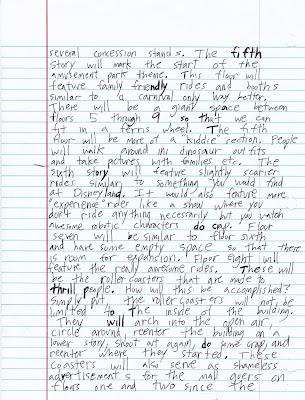 several concession stands. The fifth
story will mark the start of the
amusement park theme. This floor will
feature family friendly rides and booths
similar to a carnival only way better.
There will be a giant space between
floors 5 through 9 so that we can
fit in a ferris wheel. The fifth
floor will be more of a "kiddie" section. People
will walk around in dinosaur outfits
and take pictures with families etc. The
sixth story will feature slightly scarier
rides similar to something you would find
at Disneyland. It would also feature more
"experience" rides like a show where you
don't ride anything necessarily but you watch
awesome robotic characters do crap. Floor
seven will be similar to floor sixth
and have some empty space so that there
is room for expansion. Floor eight will
feature the really awesome rides. These will
be the roller coasters that are made to
thrill people. How will this be accomplished?
Simply put, the roller coasters will not be
limited to the inside of the building.
They will arch into the open air,
circle around, reenter the building on a
lower story, shoot out again, do some crap, and
reenter where they started. These
coasters will also serve as shameless
advertisements for the mall goers on
floors one and two since the